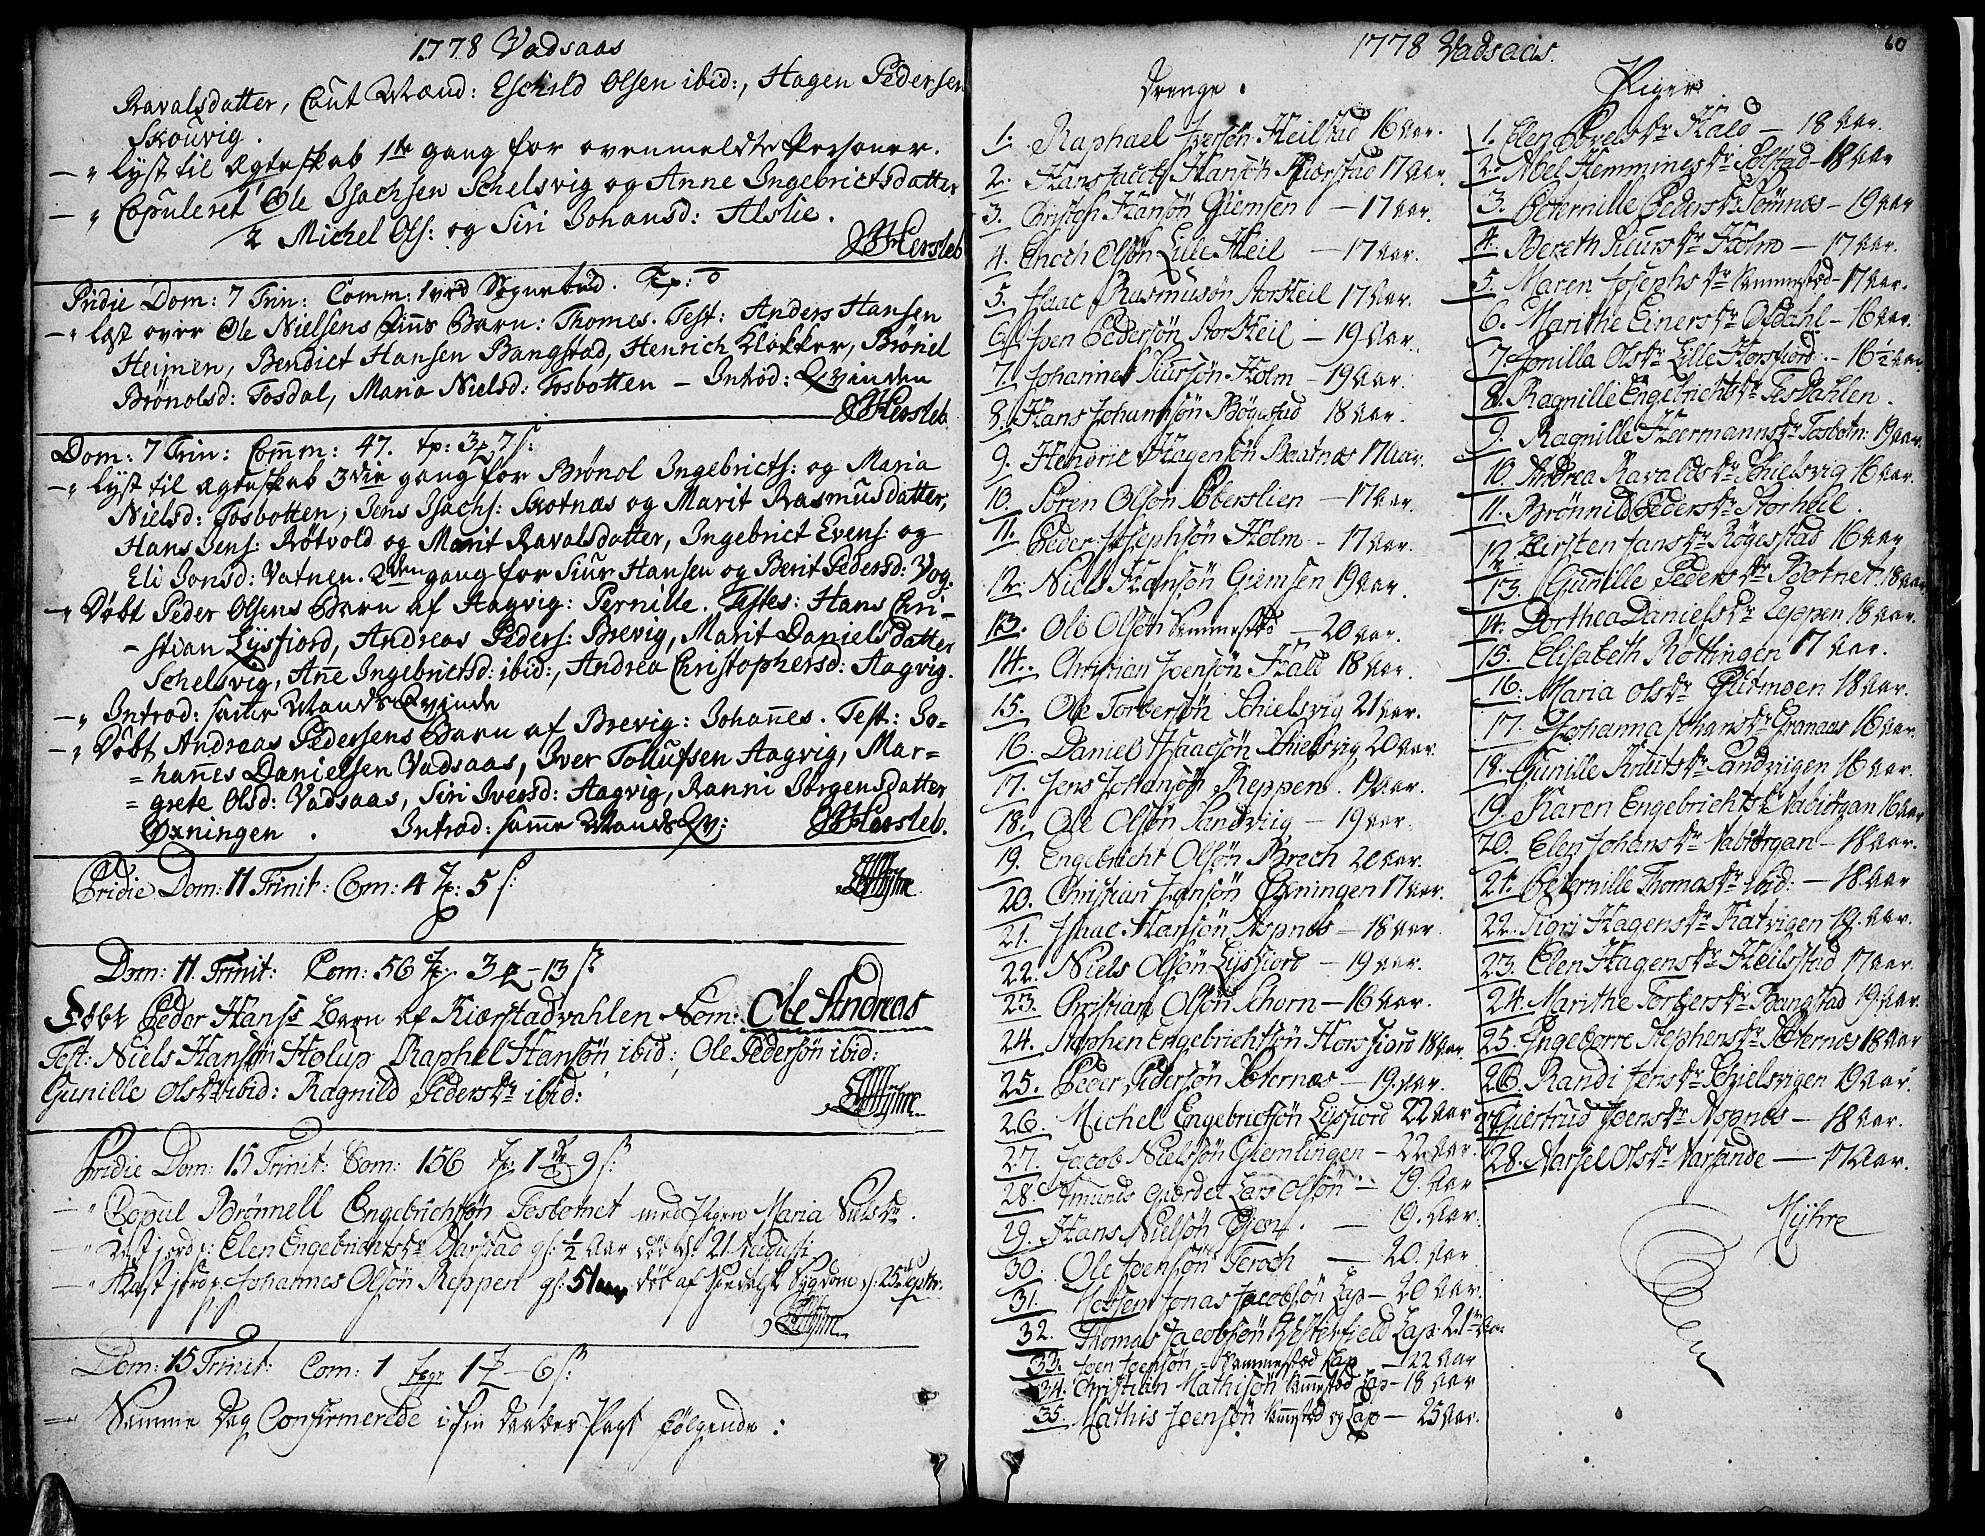 1778 Vadsaas
Ravalsdatter, Caut Mænd: Eschild Olsen ibid:, Hagen Pedersen
Skouvig.
— " Lyst til Ægteskab 1ste gang for ovenmeldte Personer.
— " Copuleret Ole Isachsen Schelsvig og Anne Ingebrictsdatter
2 Michel Ols: og Siri Johansd: Alslie.
Hersleb
Pridie Dom: 7 Trin: Comm: 1 ved Sognebud. Tp: 0
— " Læst over Ole Nielsens Finns Barn: Thomes. Test: Anders Hansen
Heimen, Bendict Hansen Bangstad, Henrich Klokker, Brönel
Brönolsd: Tosdal, Maria Nielsd: Tosbotten — Introd: Qvinden
Hersleb
Dom: 7 Trin: Comm: 47. tp: 3 7 s:
— " Lyst til Ægteskab 3die gang for Brönol Ingebricts: og Maria
Nielsd: Tosbotten; Jens Isachs: Skotnæs og Marit Rasmusdatter,
Hans Jens: Røtvold og Marit Ravalsdatter, Ingebrict Evens: og
Eli Jonsd: Vatnen. 2den gang for Siur Hansen og Berit Pedersd: Vog.
— " Døbt Peder Olsens Barn af Aagvig: Pernille. Testes: Hans Chri-
- stian Lysfiord, Andreas Peders: Brevig, Marit Danielsdatter
Schelsvig, Anne Ingebrictsd: ibid:, Andrea Christophersd: Aagvig.
— " Introd: samme Mands Qvinde
— " Døbt Andreas Pedersens Barn af Brevig: Johannes. Test: Jo=
= hannes Danielsen Vadsaas, Iver Tollufsen Aagvig, Mar=
= grete Olsd: Vadsaas, Siri Iversd: Aagvig, Ranni Jørgensdatter
Øxningen. Introd: samme Mands Qv: Hersleb.
Pridie Dom: 11 Trinit: Com: 4 Tp: 5 s:
Myhre
Dom: 11 Trinit: Com: 56 Tp: 3 — 13 s:
Døbt Peder Hans: Barn af Kiærstadvahlen Nom: Ole Andreas
Test: Niels Hansøn Holup Raphel Hansøn ibid:, Ole Pedersøn ibid:
Gunille Olsdr ibid: Ragnild Pedersdr ibid:
Myhre
Pridie Dom: 15 Trinit: Com: 156 Tp: 1 9 s:
— " Copul Brönnell Engebrichsøn Tosbotnet med Pigen Maria Nielsdr.
— " Kast jord p: Elen Engebrichtsdr Harstad gl: ½ Aar død d: 21 Augusti
— " Kast jord p: Johannes Olsøn Reppen gl: 51 aar død af Sygdom d: 25 Septr.
Myhre
Dom: 15 Trinit: Com: 1 1 — 6 s:
— Samme Dag Confirmerede i sin daabes Pagt følgende:
1778 Vadsaas.
60
Drenge.
1. Raphael Iversøn Heilstad 16 Aar.
2. Hans Jacob Hansøn Kiærstad 17 Aar.
3. Christen Hansøn Giemsen — 17 Aar.
4. Enoch Olsøn Lille Heil — 17 Aar.
5. Isaac Rasmusøn Storheil 17 Aar.
6. Joen Pedersøn Storheil — 19 Aar.
7. Johannes Siursøn Holm — 19 Aar.
8. Hans Johansøn Bøgestad 18 Aar.
9. Hendric Hagensøn Baatnæs 17 Aar.
10. Søren Olsøn Oberslien — 17 Aar.
11. Peder Josephsøn Holm — 17 Aar.
12. Niels Hansøn Giemsen 19 Aar.
13. Ole Olsøn Sammestæd — 20 Aar.
14. Christian Joensøn Hald 18 Aar.
15. Ole Torbersøn Schielsvig 21 Aar.
16. Daniel Isaacsøn Schielsvig 20 Aar.
17. Jens Johansøn Reppen. 19 Aar.
18. Ole Olsøn Sandviig — 19 Aar.
19. Engebricht Olsøn Brech 20 Aar.
20. Christian Jansøn Øxningen 17 Aar.
21. Isaac Hansøn Aspnes — 18 Aar.
22. Niels Olsøn Lysfiord — 19 Aar.
23. Christian Olsøn Schorn — 16 Aar.
24. Stephen Engebrichtsøn Horsfiord 18 Aar.
25. Peder Pedersøn Sæternæs — 19 Aar.
26. Michel Engebrictsøn Lysfiord 22 Aar
27. Jacob Nielsøn Giemlingen — 22 Aar.
28. Amunds Giærdet Lars Olsøn — 19 Aar
29. Hans Nielsøn Tjern. — 19. Aar.
30. Ole Joensøn Teroch — 20. Aar
31. Mossen Jonas Jacobsøn Lap — 20 Aar.
32. Thomas Jacobsøn Westerfield Lap. 21 Aar
33. Joen Joensøn — Sammestæd Lap — 22 Aar
34. Christian Mathisøn Samestæd Lap — 18 Aar
35. Mathis Joensøn Samestæd og Lap — 25 Aar.
Piger
1. Elen Povelsdr Hald — 18 Aar.
2. Abel Hemmingsdr Solstad — 18 Aar
3. Peternille Pedersdr Sømnæs — 19 Aar
4. Bereth Siursdr Holm — 17 Aar.
5. Maren Josephsdr Sammestæd — 17 Aar.
6. Marithe Einersdr Opdahl — 16 Aar.
7. Jonilla Olsdr Lille Horsfiord — 16½ Aar
8. Ragnille Engebrichtsdr Tosdahlen.
9. Ragnille Heermannsdr Tosbotn: 19 Aar.
10. Andrea Ravaldsdr Schielsvig 16 Aar.
11. Brønnild Pedersdr Storheil.
12. Kirsten Jansdr Bögestad 16 Aar
13. Gunille Pedersdr Botnet. 18 Aar
14. Dorthea Danielsdr Reppen 18 Aar.
15. Elisabeth Røttingen 17 Aar.
16. Maria Olsdr Plidmoen 18 Aar.
17. Johanna Johansdr Granaas 16 Aar.
18. Gunille Knutsdr Sandvigen 16 Aar.
19. Karen Engebrichtsdr Nabiørgan 16 Aar
20. Elen Johansdr Nabiørgan — 18 Aar.
21. Peternille Thomasdr ibid: — 18 Aar
22. Sigri Hagensdr Hatvigen 19. Aar.
23. Elen Hagensdr Heilstad 17 Aar.
24. Marithe Torbersdr Bangstad 19 Aar
25. Ingeborre Stephensdr Sæternæs 18 Aar
26. Randi Jensdr Schielsvigen 19 Aar
27. Giertrud Joensdr Aspnes — 18 Aar.
28. Aarsel Olsdr Narsunde — 17 Aar.
Myhre